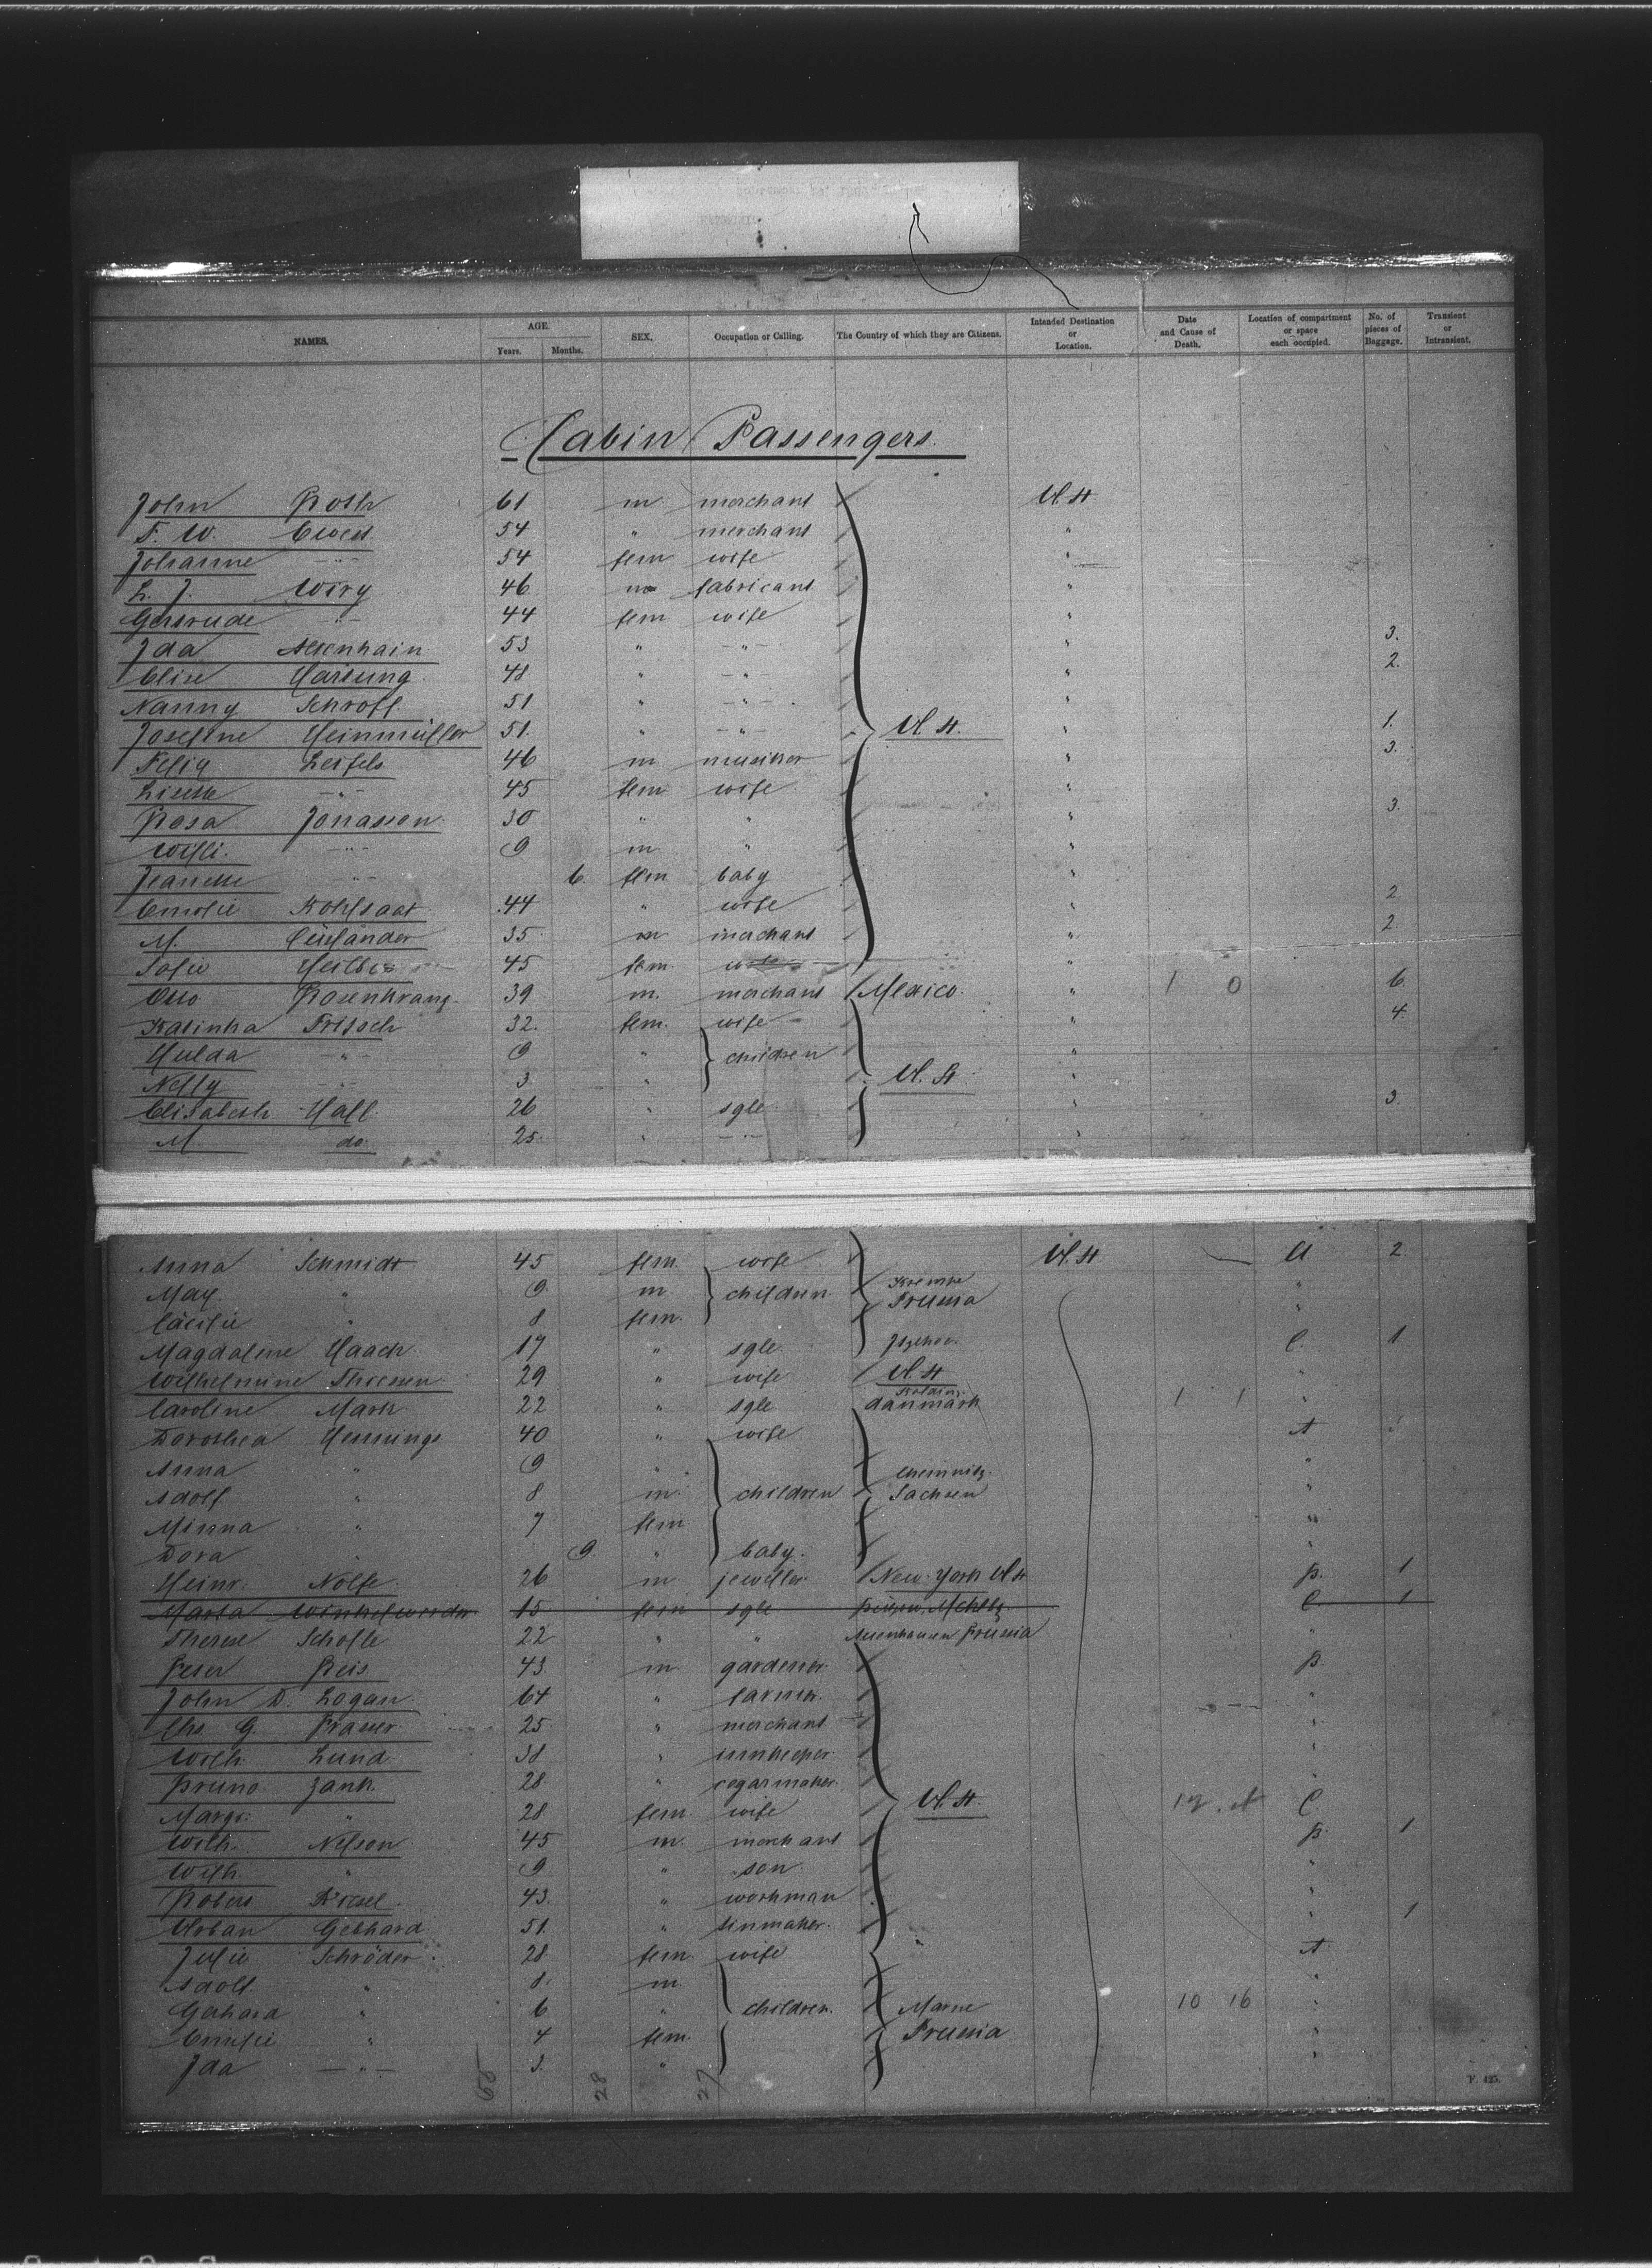 NAMES. AGE. SEX. Occupation or Calling. The Country of which they are Citizens. Intended Destination or Location. Date and Cause of Death. Location of compartment or space each occupied. No. of pieces of Baggage. Transient or Intransient.
Years. Months.
Cabin Passengers
John Roth 61 m merchant U. St
F. W. 54 " merchant "
Johanne -"- 54 fem wife "
L. J. Wirg 46 m fabricant "
Gertrude -"- 44 fem wife "
Ida 53 " -"- " 3.
Elise Hartung 48 " -"- " 2.
Nanny Schroff 51 " -"- "
Josefine Heinmüller 51. " -"- U. St. " 1.
Felix Leifels 46 m musiker " 3.
Lisette -"- 45 fem wife "
Rosa Jonasson 30 " " " 3.
Willi -"- 9 m " "
Jeanette -"- 6. fem baby "
Emilie Kohlsaat 44 " wife " 2
M. 35 m merchant " 2.
Sofie 45 fem. wife "
Otto Rosenkranz 39 m. merchant Mexico. " 1 0 6.
Katinka Fritsch 32. fem. wife " 4
Hulda -"- 9 " children "
Nelly -"- 3 " U. St "
Elisabeth Hall 26 " sgle " 3.
M. do 25. " -"- "
Anna Schmidt 45 fem. wife U. St A 2
Max " 9. m. children Krempe Prussia "
Cäcilie " 8 fem. "
Magdalene Haack 17 " sgle. Itzehoe. C. 1
Wilhelmine Thiessen 29 " wife U. St "
Caroline Mark 22 " sgle Kolding danmark 1 1 "
Dorothea Hennings 40 " wife A
Anna " 9 " Chemnitz "
Adolf " 8 m. children Sachsen "
Minna " 7 fem "
Dora " 9. " baby. "
Heinr. Nolte 26 m jeweller New-York U St B. 1
Marta 15 fem sgle C 1
Therese Scholle 22 " " Prussia "
Peter Reis 43 m gardener. B.
John D. Logan 64 " farmer. "
Chs. G. 25 " merchant "
Wilh. Lund 38 " innkeeper "
Bruno Jank 28 " cegarmaker. "
Margr. " 28 fem wife U. St. C
Wilh. Nelson 45 m. merchant B. 1
Wilh. " 9 " son "
Robert Kiesel 43. " workman "
Urban Gebhard 51. " tinmaker. " 1
Julie Schröder 28 fem wife A
Adolf " 8. m "
Gerhard " 6 " children. Marne 10 16 "
Emilie " 4 fem. Prussia "
Ida -"- 3. " "
68 28 27
F. 425.